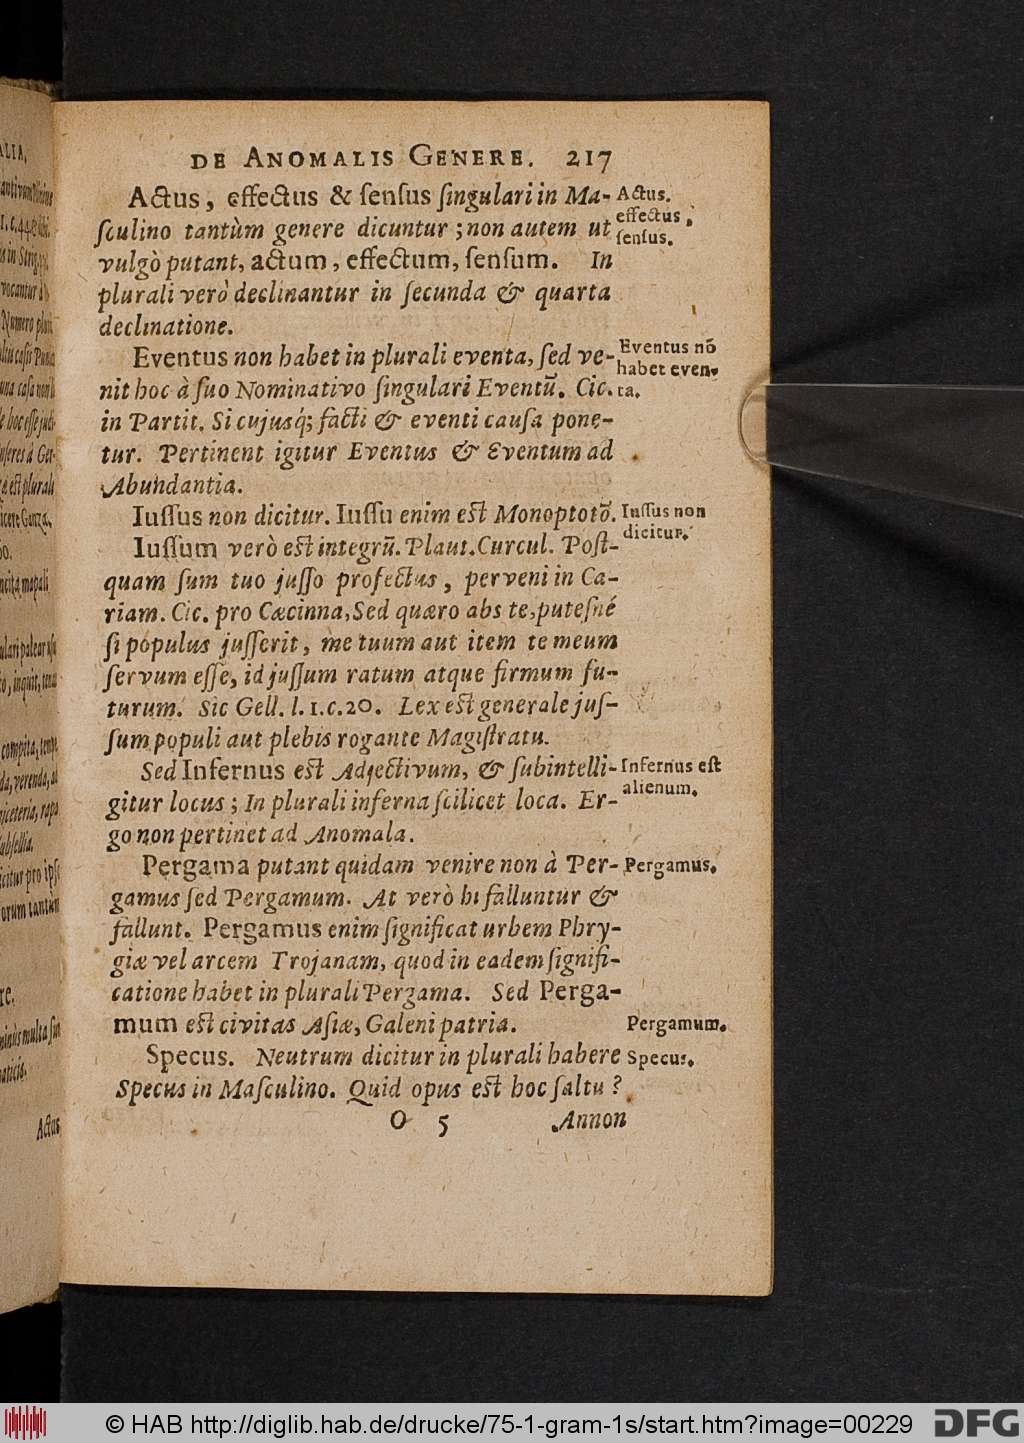 DE ANOMALIS GENERE. 217
Actus, effectus & ſenſus ſingulari in Ma-
ſculino tantùm genere dicuntur; non autem ut
vulgò putant, actum, effectum, ſenſum. In
plurali verò declinantur in ſecunda & quarta
declinatione.
Eventus non habet in plurali eventa, ſed ve-
nit hoc à ſuo Nominativo ſingulari Eventũ. Cic.
in Partit. Si cujusq́; facti & eventi cauſa pone-
tur. Pertinent igitur Eventus & Eventum ad
Abundantia.
Iuſſus non dicitur. Iuſſu enim est Monoptotõ.
Iuſſum verò est integrũ. Plaut. Curcul. Poſt-
quam ſum tuo juſſo profectus, perveni in Ca-
riam. Cic. pro Cæcinna, Sed quæro abs te, puteſné
ſi populus juſſerit, me tuum aut item te meum
ſervum eſſe, id juſſum ratum atque firmum fu-
turum. Sic Gell. l. 1. c. 20. Lex est generale juſ-
ſum populi aut plebis rogante Magiſtratu.
Sed Infernus est Adjectivum, & ſubintelli-
gitur locus; In plurali inferna ſcilicet loca. Er-
go non pertinet ad Anomala.
Pergama putant quidam venire non à Per-
gamus ſed Pergamum. At verò hi falluntur &
fallunt. Pergamus enim ſignificat urbem Phry-
giæ vel arcem Trojanam, quod in eadem ſignifi-
catione habet in plurali Pergama. Sed Perga-
mum est civitas Aſiæ, Galeni patria.
Specus. Neutrum dicitur in plurali habere
Specus in Maſculino. Quid opus est hoc ſaltu?
O 5 Annon
Actus.
effectus,
ſenſus.
Eventus nõ
habet even-
ta.
Iuſſus non
dicitur.
Infernus eſt
alienum.
Pergamus.
Pergamum.
Specus.
ALIA,
Actus
© HAB http://diglib.hab.de/drucke/75-1-gram-1s/start.htm?image=00229
DFG